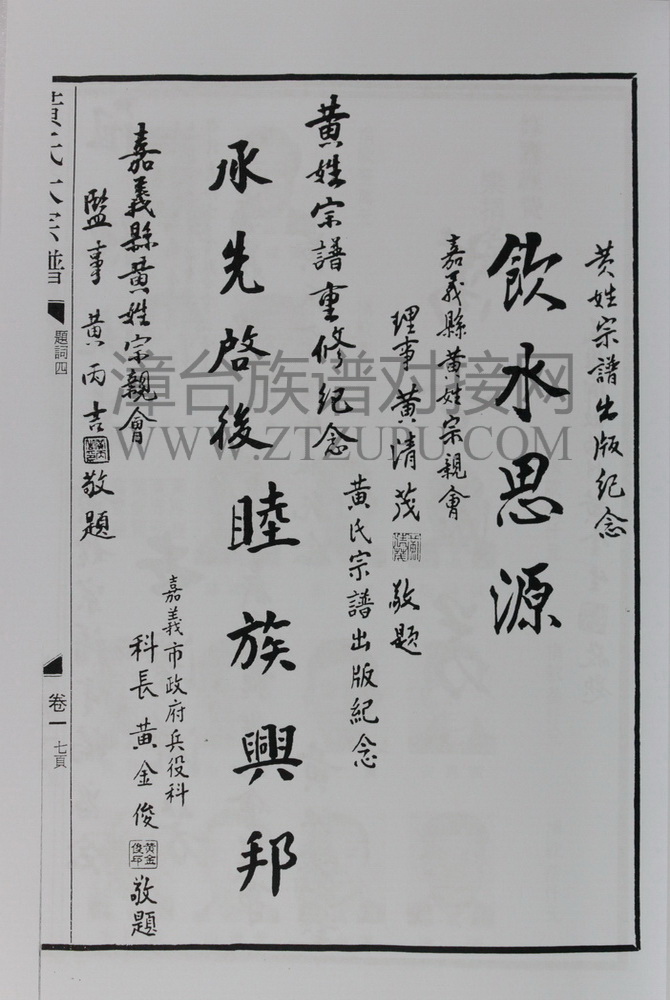 黄姓宗譜出版紀念
飲水思源
嘉義縣黄姓宗親會
理事 黄清茂 敬題
黄姓宗譜重修紀念
承先啓後
嘉義縣黄姓宗親會
監事 黄丙吉 敬題
黄氏宗譜出版紀念
睦族興邦
嘉義市政府兵役科
科長 黄金俊 黄金俊印 敬題
黄氏大宗譜
題詞四
卷一
七頁
漳台族谱对接网
WWW.ZTZUPU.COM